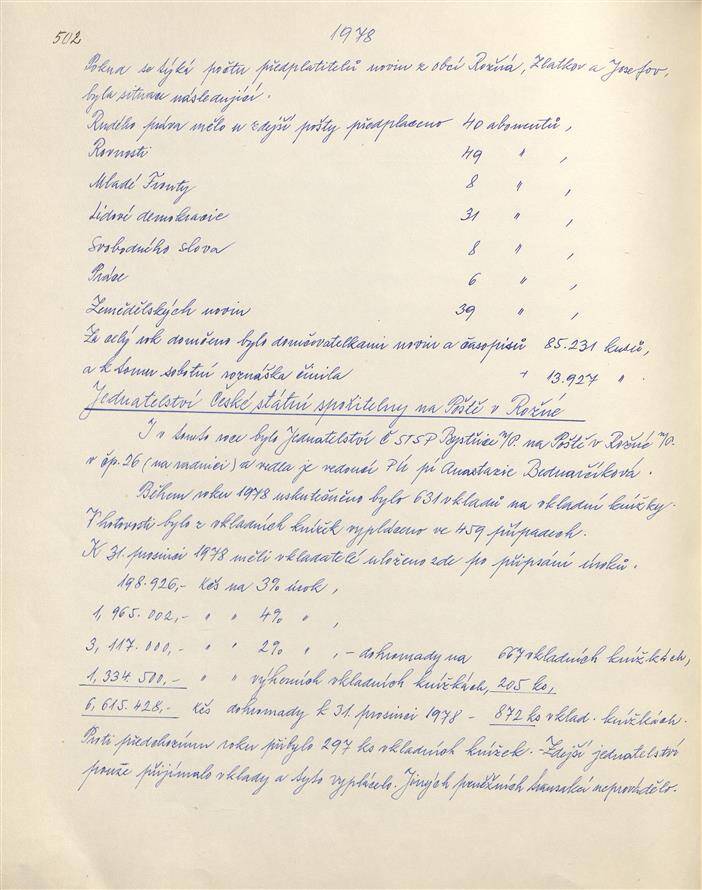 502
1978
Pokud se týká počtu předplatitelů novin z obcí Rožná, Zlatkov a Josefov,
byla situace následující.
Rudého práva mělo u zdejší pošty předplaceno 40 abonentů,
Rovnosti 49 " ,
Mladé Fronty 8 " ,
Lidové demokracie 31 " ,
Svobodného slova 8 " ,
Práce 6 " ,
Zemědělských novin 39 " ,
Za celý rok doručeno bylo doručovatelkami novin a časopisů 85.231 kusů,
a k tomu sobotní roznáška činila 13.927 " .
Jednatelství České státní spořitelny na Poště v Rožné
I v tomto roce bylo Jednatelství ČSTSP Bystřice n/P. na Poště v Rožné n/P.
v čp. 26 (na radnici) a vedla je vedoucí PÚ pí Anastazie Bednarčíková.
Během roku 1978 uskutečněno bylo 631 vkladů na vkladní knížky.
V hotovosti bylo z vkladních knížek vyplaceno ve 459 případech.
K 31. prosinci 1978 měli vkladatelé uloženo zde po připsání úroků.
198.926,- Kčs na 3% úrok,
1,965.002,- " " 4% " ,
3,117.000,- " " 2% " , - dohromady na 667 vkladních knížkách,
1,334.500,- " " výherních vkladních knížkách, 205 ks,
6,615.428,- Kčs dohromady k 31. prosinci 1978 - 872 ks vklad. knížkách.
Proti předchozímu roku přibylo 297 ks vkladních knížek. - Zdejší jednatelství
pouze přijímalo vklady a tyto vyplácelo. Jiných peněžních transakcí neprovádělo.